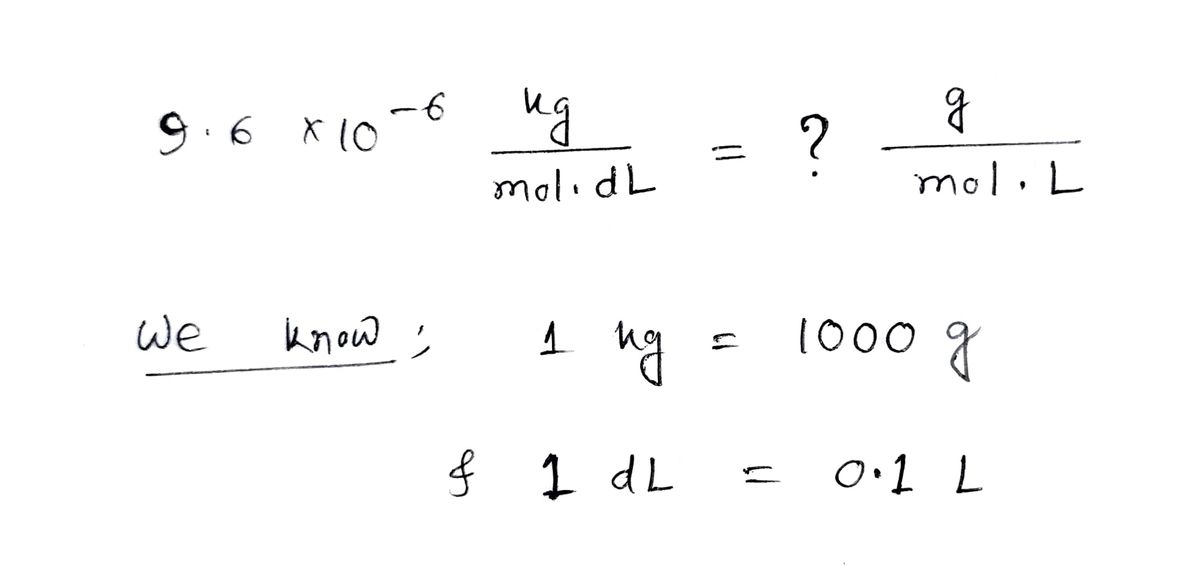 9.6 × 10⁻⁶ kg/mol.dL = ? g/mol.L
We know ; 1 kg = 1000 g
& 1 dL = 0.1 L